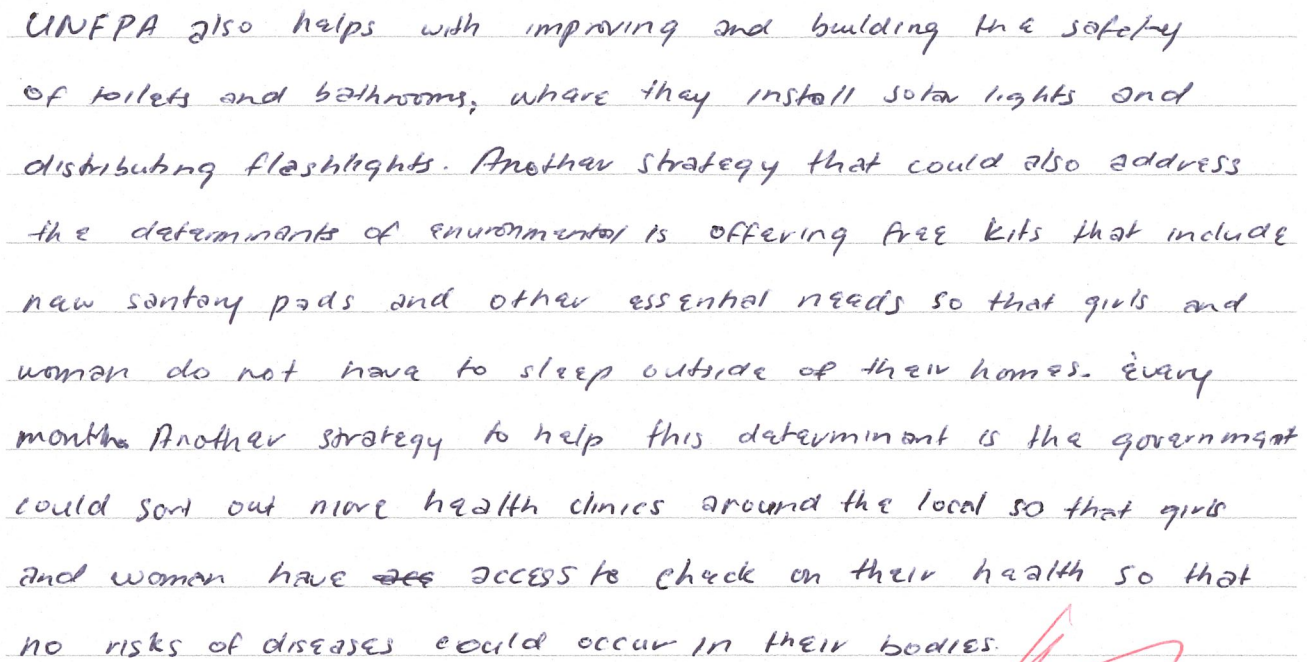 UNFPA also helps with improving and building the safety
of toilets and bathrooms, where they install solar lights and
distributing flashlights. Another strategy that could also address
the determinants of enviromental is offering free kits that include
new santary pads and other essential needs so that girls and
woman do not have to sleep outside of their homes. Every
month. Another strategy to help this determinant is the government
could sort out more health clinics around the local so that girls
and women have access to check on their health so that
no risks of diseases could occur in their bodies.